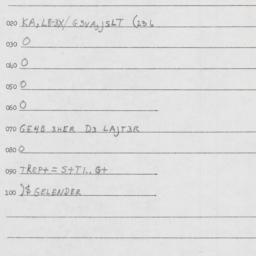 020 KA,LB-3X/GSVA,JSLT (236
030 0
040 0
050 0
060 0
070 GE4B 3HER D3 LAJT3R
080 0
090 TROP+=S+T1..G+
100 )$ GELENDER